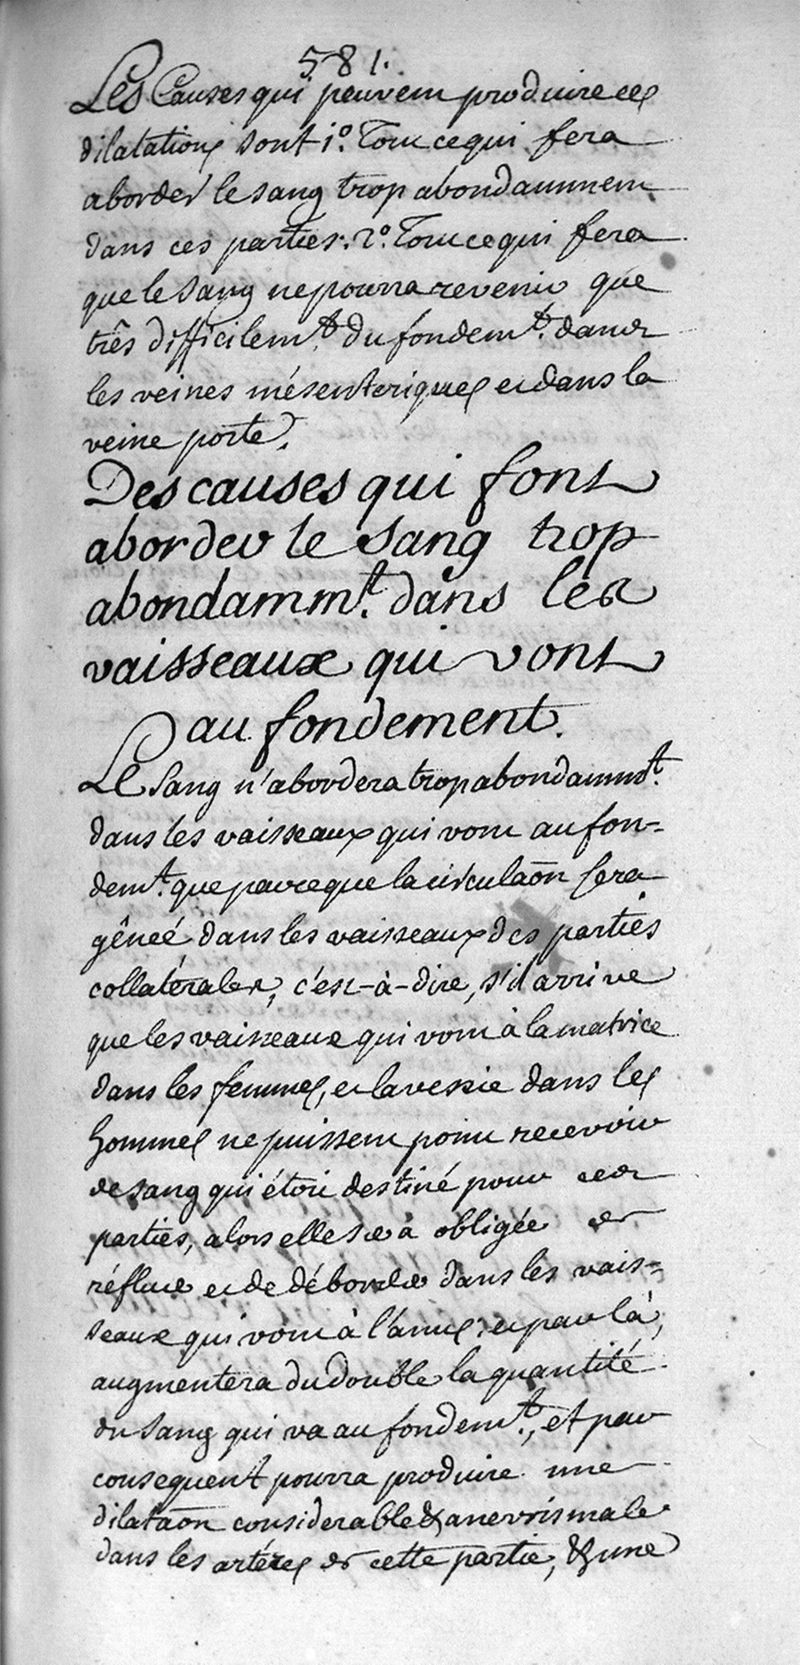 581.
Les Causes qui peuvent produire ces
dilatations sont 1º. Tout ce qui fera
aborder le sang trop abondamment
dans ces parties. 2º. Tout ce qui fera
que le sang ne pourra revenir que
três difficilemt. du fondemt. dans
les veines mésenteriques et dans la
veine porte.
Des causes qui font
aborder le sang trop
abondammt. dans les
vaisseaux qui vont
au fondement.
Le sang n'abordera trop abondammt.
dans les vaisseaux qui vont au fon=
demt. que parceque la circulaõn sera
gêneé dans les vaisseaux des parties
collatérales, c'est-à-dire, s'il arrive
que les vaisseaux qui vont à la matrice
dans les femmes, et la vessie dans les
hommes ne puissent point recevoir
le sang qui étoit destiné pour ces
parties, alors elle sera obligée de
réfluer et de déborder dans les vais=
seaux qui vont à l'anus; et par là,
augmentera du double la quantité
du sang qui va au fondemt., et par
consequent pourra produire une
dilataõn considerable & anevrismale
dans les artéres de cette partie, & une